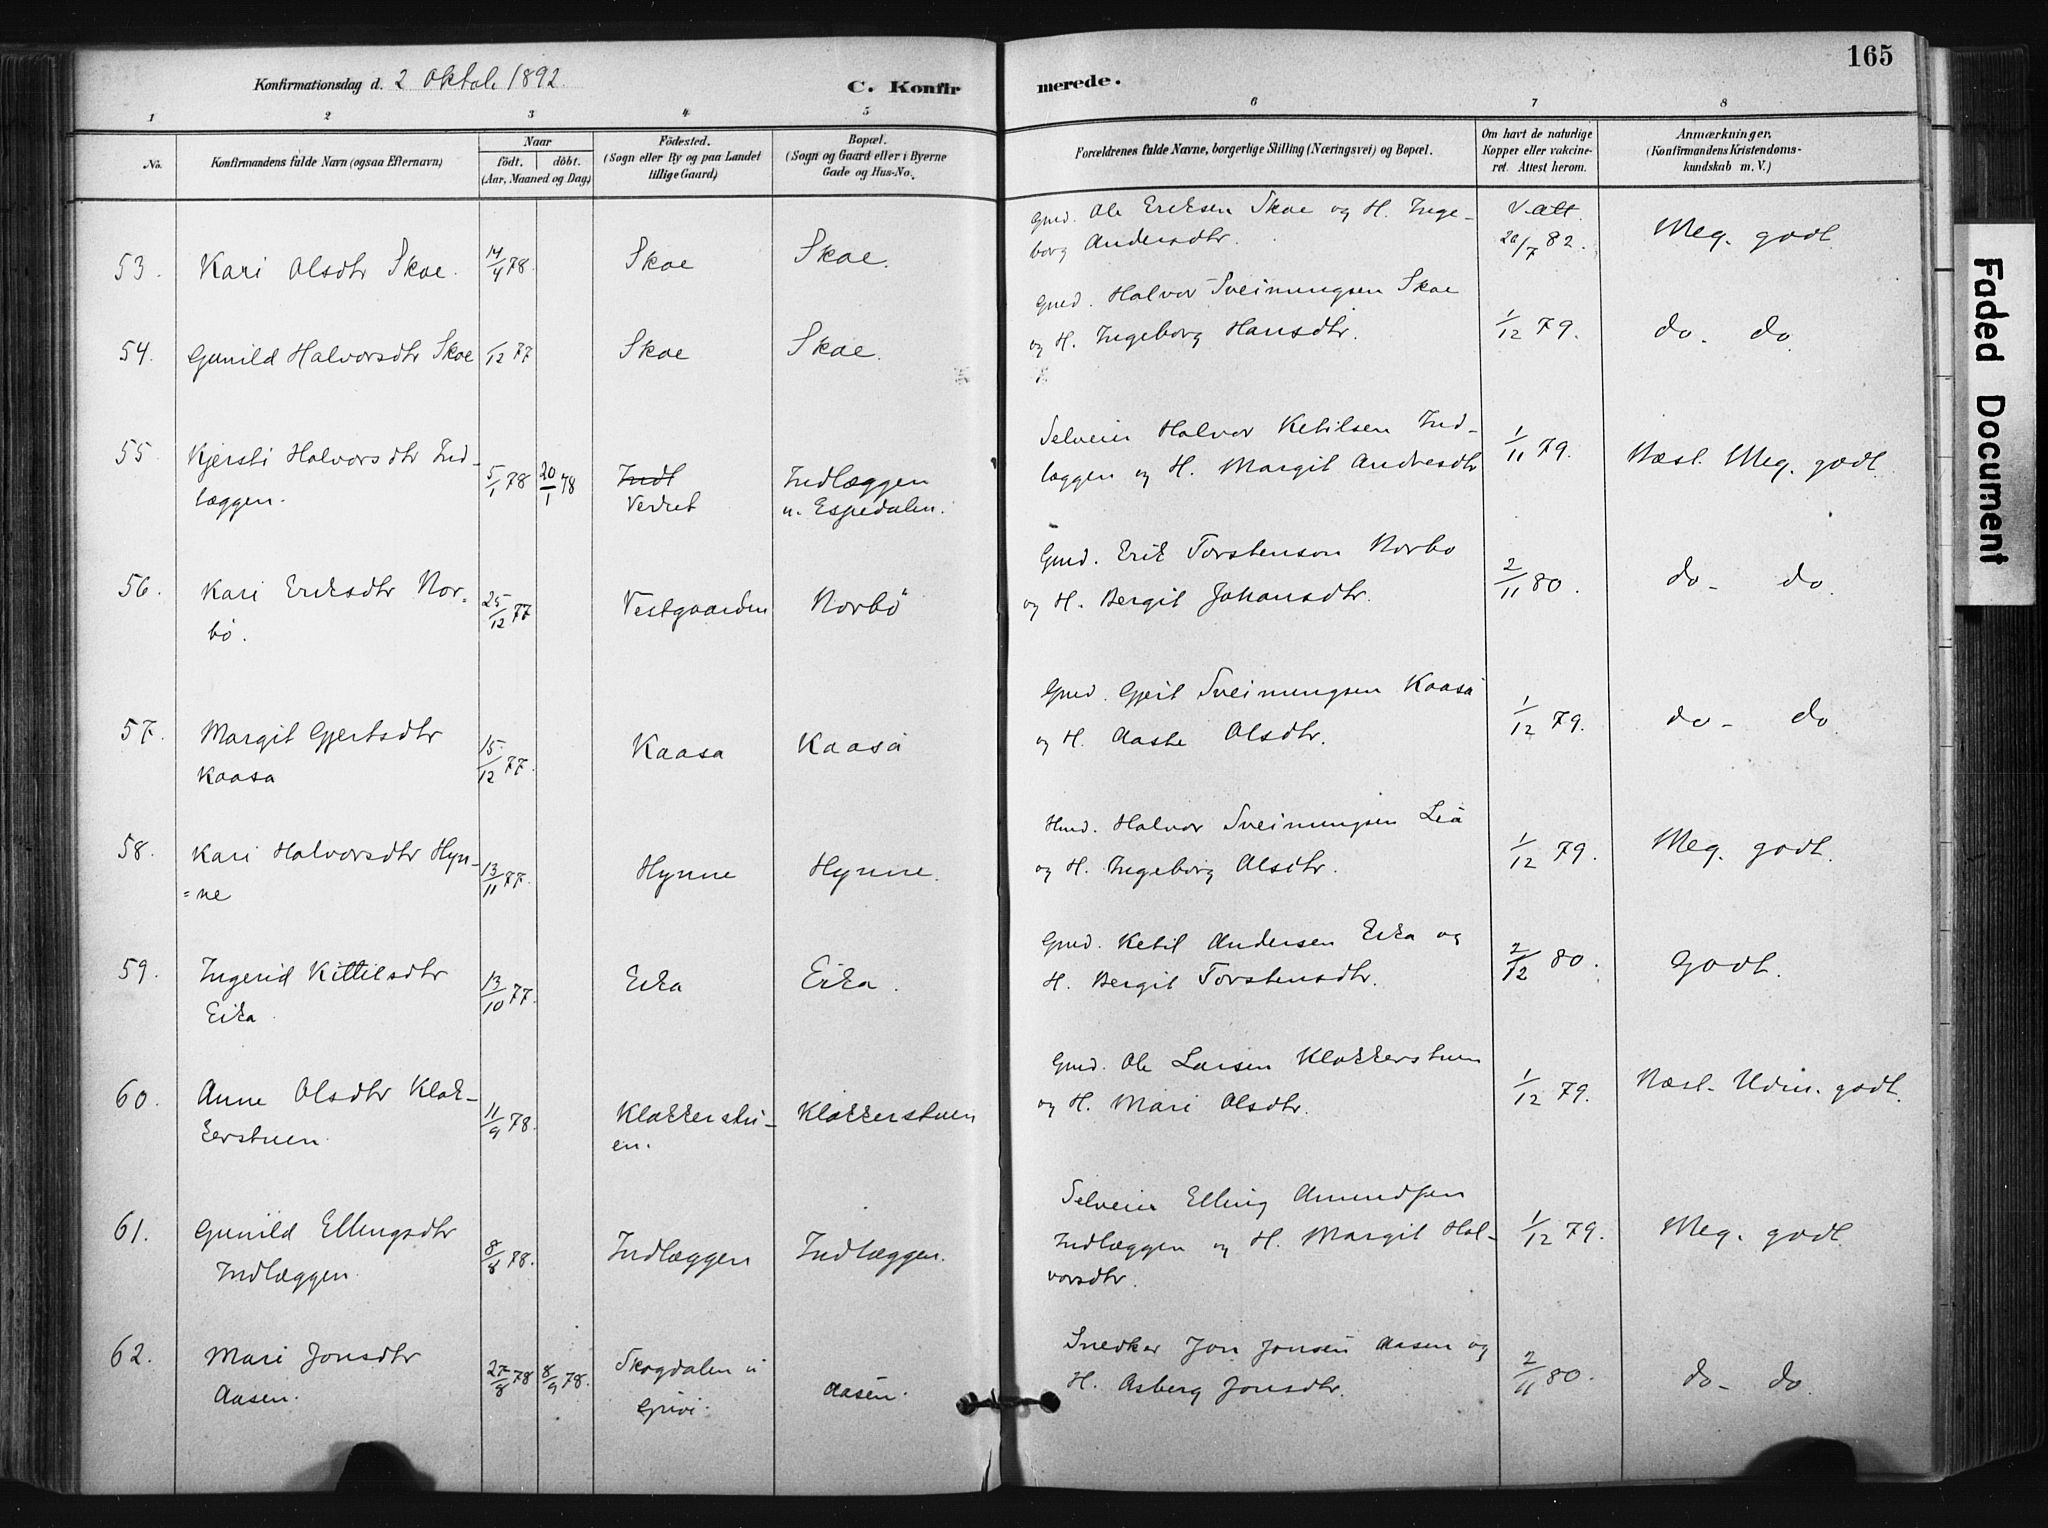 165
Konfirmationsdag d. 2 Oktob. 1892.
C. Konfirmerede.
1 2 3 4 5 6 7 8
No.
Konfirmandens fulde Navn (ogsaa Efternavn)
Naar
födt. döbt.
(Aar, Maaned og Dag)
Födested.
(Sogn eller By og paa Landet
tillige Gaard)
Bopæl.
(Sogn og Gaard eller i Byerne
Gade og Hus-No.
Forældrenes fulde Navne, borgerlige Stilling (Næringsvei) og Bopæl.
Om havt de naturlige
Kopper eller vakcine-
ret. Attest herom.
Anmærkninger.
(Konfirmandens Kristendoms-
kundskab m. V.)
53. Kari Olsdtr Skoe. 14/4 78. Skoe Skoe.
Gmd. Ole Eriksen Skoe og H. Inge-
borg Andersdtr.
V. att.
20/7 82.
Meg. godt
54. Gunild Halvorsdtr Skoe 1/12 77 Skoe Skoe.
Gmd. Halvor Sveinungsen Skoe
og H. Ingeborg Hansdtr.
1/12 79. do. do.
55. Kjersti Halvorsdtr Ind-
læggen. 5/1 78 20/1 78 Indl
Verket
Indlæggen
u. Espedalen.
Selveier Halvor Ketilsen Ind-
læggen og H. Margit Andresdtr
1/11 79. Næst. Meg. godt.
56. Kari Eriksdtr Nor-
bö. 25/12 77 Vestgaarden Norbö
Gmd. Erik Torstenson Norbo
og H. Bergit Johansdtr.
2/11 80. do - do.
57. Margit Gjertsdtr
Kaasa 15/12 77. Kaasa Kaasa
Gmd. Gjert Sveinungsen Kaasa
og H. Aaste Olsdtr.
1/12 79. do - do.
58. Kari Halvorsdtr Hyn-
=ne 13/11 77. Hynne Hynne.
Hmd. Halvor Sveinungsen Lia
og H. Ingeborg Olsdtr.
1/12 79. Meg. godt.
59. Ingerid Kittilsdtr
Eika 13/10 77. Eika Eika.
Gmd. Ketil Andersen Eika og
H. Bergit Torstensdtr.
2/12 80. Godt.
60. Anne Olsdtr Klok-
kerstuen. 11/9 78. Klokkerstu-
en. Klokkerstuen
Gmd. Ole Larsen Klokkerstuen
og H. Mari Olsdtr.
1/12 79. Næst. Udm. godt.
61. Gunild Ellingsdtr
Indlæggen. 8/8 78. Indlæggen Indlæggen.
Selveier Elling Amundsen
Indlæggen og H. Margit Hal-
vorsdtr.
1/12 79. Meg. godt.
62. Mari Jonsdtr
Aasen. 27/8 78 8/9 78. Skogdalen u
Grivi. Aasen.
Snedker Jon Jonsen Aasen og
H. Asberg Jonsdtr.
2/11 80. do - do.
Faded Document